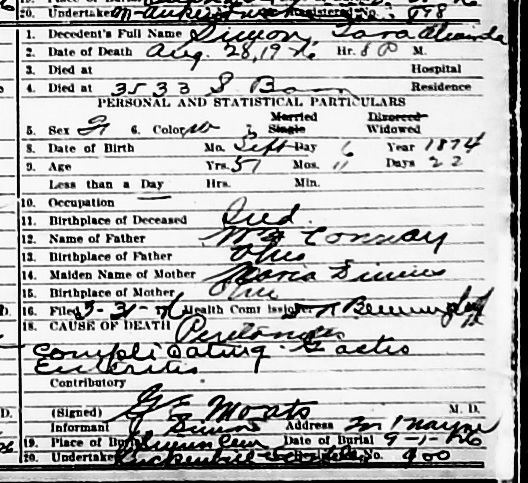 20. Undertaker Registered No. 898
1. Decedent's Full Name Simon,
2. Date of Death Aug. 28, 19 26 Hr. 8 P M.
3. Died at Hospital
4. Died at 3533 S Residence
PERSONAL AND STATISTICAL PARTICULARS
Married Divorced
5. Sex 6. Color w 7. Single Widowed
8. Date of Birth Mo. Sept Day 6 Year 1874
9. Age Yrs. 51 Mos. 11 Days 22
Less than a Day Hrs. Min.
10. Occupation
11. Birthplace of Deceased Ind.
12. Name of Father Wm Conway
13. Birthplace of Father Ohio
14. Maiden Name of Mother Maria
15. Birthplace of Mother Ohio
16. Filed 8-31-26 Health Commissioner
18. CAUSE OF DEATH
Complicating Gastro
Enteritis
Contributory
(Signed) G E Moats M. D.
Informant Simon Address Ft Wayne
19. Place of Burial Cem Date of Burial 9-1-26
20. Undertaker No. 900